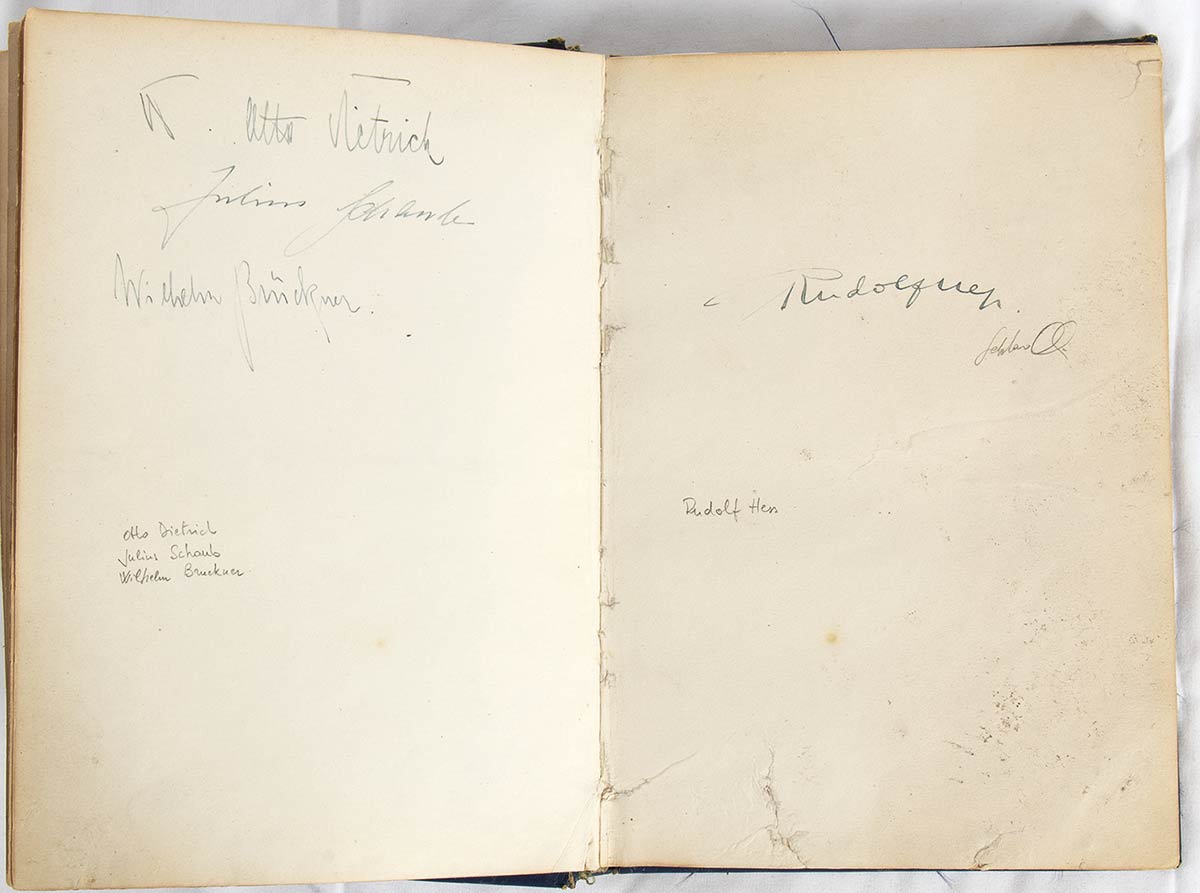 Otto Dietrich
Julius Schaub
Wilhelm Brückner.
Otto Dietrich
Julius Schaub
Wilhelm Bruckner
Rudolf Hess
Rudolf Hess